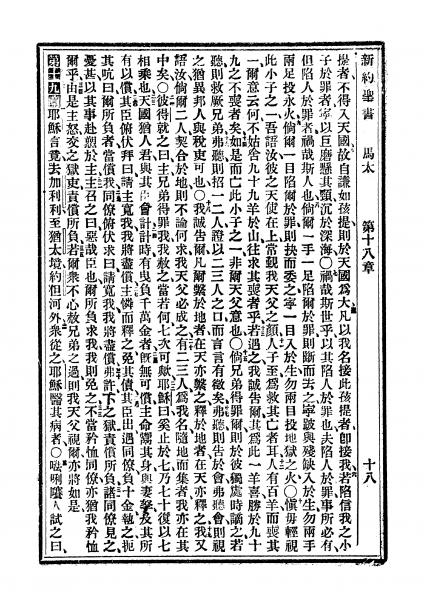 新約聖書 馬太 第十八章 十八
提者不得入天國故自謙如孩提則於天國爲大凡以我名接此孩提者卽接我若陷信我之小
子於罪者寧以巨磨懸其頸沉於深海〇禍哉斯世乎以其陷人於罪也夫陷人於罪事所必有
但陷人於罪者禍哉斯人也倘爾一手一足陷爾於罪則斷而去之寧跛與殘缺入於生勿兩手
兩足投永火倘爾一目陷爾於罪則抉而委之寧一目入於生勿兩目投地獄之火〇愼毋輕視
此小子之一吾語汝彼之天使在上常覲我天父之顏人子至爲救其亡者耳人有百羊而喪其
一爾意云何不姑舍九十九羊於山往求其喪者乎若遇之我誠告爾其爲此一羊喜勝於九十
九之不喪者矣如是而亡此小子之一非爾天父意也〇倘兄弟得罪爾則於彼獨處時謫之若
聽則救厥兄弟弗聽則招一二人證以二三人之口而言言有徵矣弗聽則告於會弗聽會則視
之猶異邦人與稅吏可也〇我誠告爾凡爾繫於地者在天亦繫之釋於地者在天亦釋之我又
語汝倘爾二人契合於地則不論何求我天父必成之有二三人爲我名隨地而集者我亦在其
中矣〇彼得就之曰主兄弟得罪我我赦之當若何七次可歟耶穌曰奚止於七乃七十復以七
相乘也天國猶人君與其臣會計計時有曳負千萬金者旣無可償主命鬻其身與妻孥及其所
有以償其臣俯伏拜曰請主寬我我將盡償主憐而釋之免其債其臣出遇同僚負十金執之扼
其吭曰爾所負者當償我同僚俯伏求曰請寬我我將盡償弗許下之獄責償所負諸同僚見之
憂甚以其事赴愬於主主召之曰惡哉臣也爾所負求我我則免之不當矜恤同僚亦猶我矜恤
爾乎由是主怒交之獄吏責償所負若爾衆不心赦兄弟之過則我天父視爾亦將如是
第十九章 耶穌言竟去加利利至猶太境約但河外衆從之耶穌醫其病者〇唎人試之曰